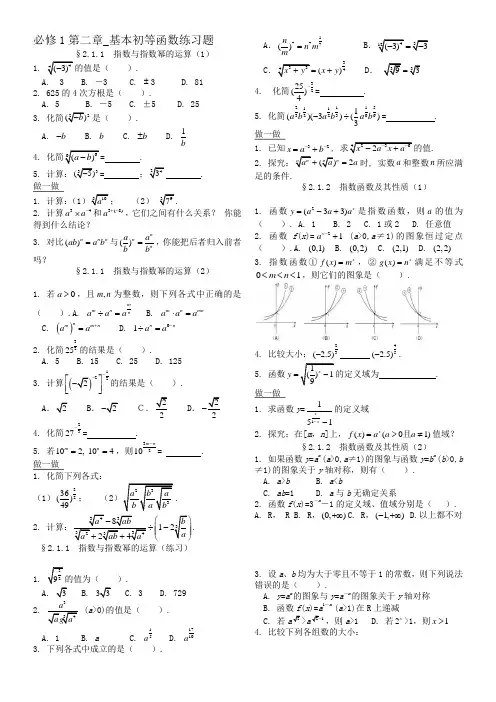 必修1第二章_基本初等函数练习题
§2.1.1 指数与指数幂的运算（1）
1. $\sqrt[4]{(-3)^4}$ 的值是（ ）.
A. 3 B. －3 C. ±3 D. 81
2. 625的4次方根是（ ）.
A. 5 B. －5 C. ±5 D. 25
3. 化简 是（ ）.
A. $-b$ B. $b$ C. $\pm b$ D. $\frac{1}{b}$
4. 化简 = .
5. 计算： = ； .
做一做
1. 计算：（1） ；（2） .
2. 计算 和 ，它们之间有什么关系？ 你能
得到什么结论？
3. 对比 $(ab)^n=a^nb^n$ 与 $(\frac{a}{b})^n=\frac{a^n}{b^n}$，你能把后者归入前者
吗？
§2.1.1 指数与指数幂的运算（2）
1. 若 $a>0$，且 $m,n$ 为整数，则下列各式中正确的是
（ ）. A. $a^m\div a^n=a^{\frac{m}{n}}$ B. $a^m\cdot a^n=a^{mn}$
C. $(a^m)^n=a^{m+n}$ D. $1\div a^n=a^{0-n}$
2. 化简 $25^{\frac{3}{2}}$ 的结果是（ ）.
A. 5 B. 15 C. 25 D. 125
3. 计算 的结果是（ ）.
A. $\sqrt{2}$ B. $-\sqrt{2}$ C. $\frac{\sqrt{2}}{2}$ D. $-\frac{\sqrt{2}}{2}$
4. 化简 = .
5. 若 $10^m=2,\ 10^n=4$，则 = .
做一做
1. 化简下列各式：
（1） $(\frac{36}{49})^{\frac{3}{2}}$； （2） .
2. 计算：
§2.1.1 指数与指数幂的运算（练习）
1. 的值为（ ）.
A. $\sqrt{3}$ B. $3\sqrt{3}$ C. 3 D. 729
2. (a>0)的值是（ ）.
A. 1 B. a C. $a^{\frac{1}{5}}$ D. $a^{\frac{17}{10}}$
3. 下列各式中成立的是（ ）.
A. $(\frac{n}{m})^7=n^7m^{\frac{1}{7}}$ B. $\sqrt[12]{(-3)^4}=\sqrt[3]{-3}$
C. $\sqrt[4]{x^3+y^3}=(x+y)^{\frac{3}{4}}$ D. $\sqrt{\sqrt[3]{9}}=\sqrt[3]{3}$
4. 化简 $(\frac{25}{4})^{-\frac{3}{2}}$= .
5. 化简 $(a^{\frac{2}{3}}b^{\frac{1}{2}})(-3a^{\frac{1}{2}}b^{\frac{1}{3}})\div(\frac{1}{3}a^{\frac{1}{6}}b^{\frac{5}{6}})$= .
做一做
1. 已知 $x=a^{-3}+b^{-2}$，求 的值.
2. 探究： 时，实数 $a$ 和整数 $n$ 所应满
足的条件.
§2.1.2 指数函数及其性质（1）
1. 函数 $y=(a^2-3a+3)a^x$ 是指数函数，则 $a$ 的值为
（ ）. A. 1 B. 2 C. 1或2 D. 任意值
2. 函数 f(x)=$a^{x-2}+1$ (a>0,a≠1)的图象恒过定点
（ ）. A. (0,1) B. (0,2) C. (2,1) D. (2,2)
3. 指数函数① $f(x)=m^x$，② $g(x)=n^x$ 满足不等式
$0<m<n<1$，则它们的图象是（ ）.
A
B
C
D
4. 比较大小：$(-2.5)^{\frac{2}{3}}$ $(-2.5)^{\frac{4}{5}}$.
5. 函数 $y=\sqrt{(\frac{1}{9})^x-1}$ 的定义域为 .
做一做
1. 求函数 y=$\frac{1}{5^{\frac{x}{x-1}}-1}$ 的定义域
2. 探究：在[m，n]上，$f(x)=a^x(a>0且a\ne1)$ 值域？
§2.1.2 指数函数及其性质（2）
1. 如果函数 $y=a^x$ (a>0,a≠1)的图象与函数 $y=b^x$ (b>0,b
≠1)的图象关于y轴对称，则有（ ）.
A. a>b B. a<b
C. ab=1 D. a与b无确定关系
2. 函数 $f(x)=3^{-x}-1$ 的定义域、值域分别是（ ）.
A. R, R B. R, $(0,+\infty)$ C. R, $(-1,+\infty)$ D.以上都不对
3. 设a、b均为大于零且不等于1的常数，则下列说法
错误的是（ ）.
A. $y=a^x$ 的图象与 $y=a^{-x}$ 的图象关于y轴对称
B. 函数 $f(x)=a^{1-x}$ (a>1)在R上递减
C. 若 $a^{\sqrt{2}}>a^{\sqrt{2}-1}$，则a>1 D. 若 $2^x>1$，则 $x>1$
4. 比较下列各组数的大小：